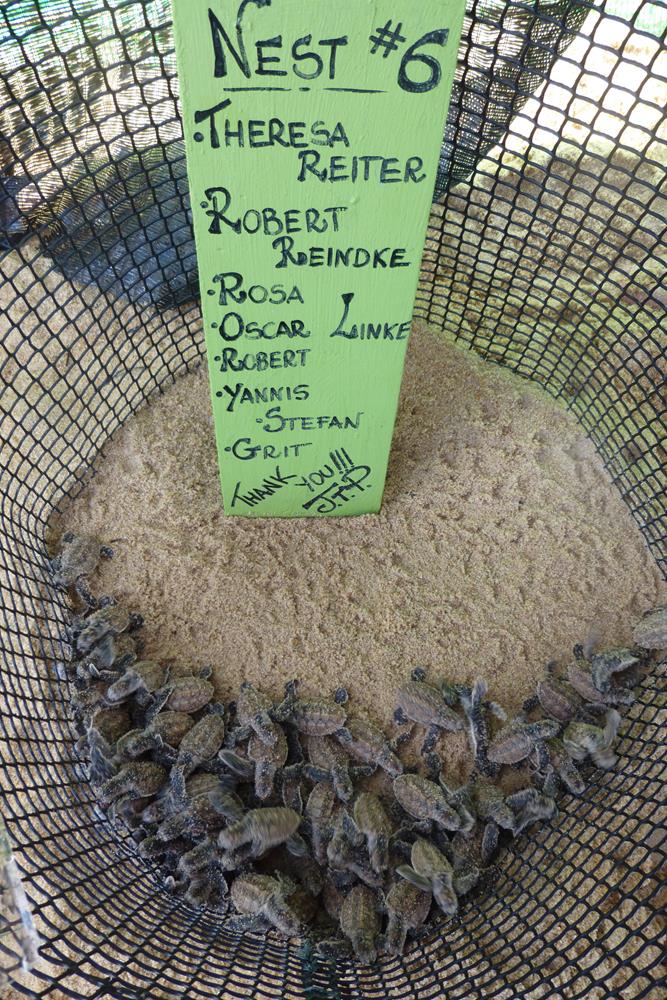 NEST #6
·THERESA
REITER
·ROBERT
REINDKE
·ROSA
·OSCAR LINKE
·ROBERT
·YANNIS
·STEFAN
·GRIT
THANK YOU!!!
J.T.P.